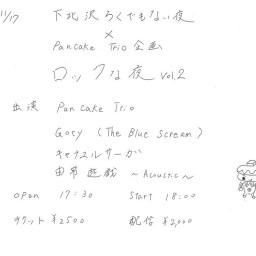 11/17 下北沢ろくでもない夜
×
Pancake Trio 企画
ロックな夜 vol.2
出演 Pancake Trio
Gosy (The Blue Scream)
キャナコルサーガ
由常遊戯 ~Acoustic~
open 17:30 Start 18:00
チケット ¥2500 配信 ¥2,000